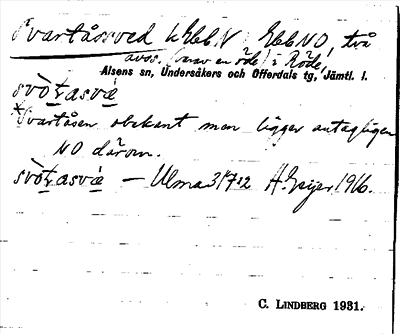 Svartåssved 4 Ebl. V. Ebl. NO, två
avs. (varav en öde) i Röde,
Alsens sn, Undersåkers och Offerdals tg, Jämtl. l.
svòʈasvé
*Svartåsen obekant men ligger antagligen
NO därom.
svòʈasvé — Ulma 317:2 H. Geijer 1916.
C. LINDBERG 1931.